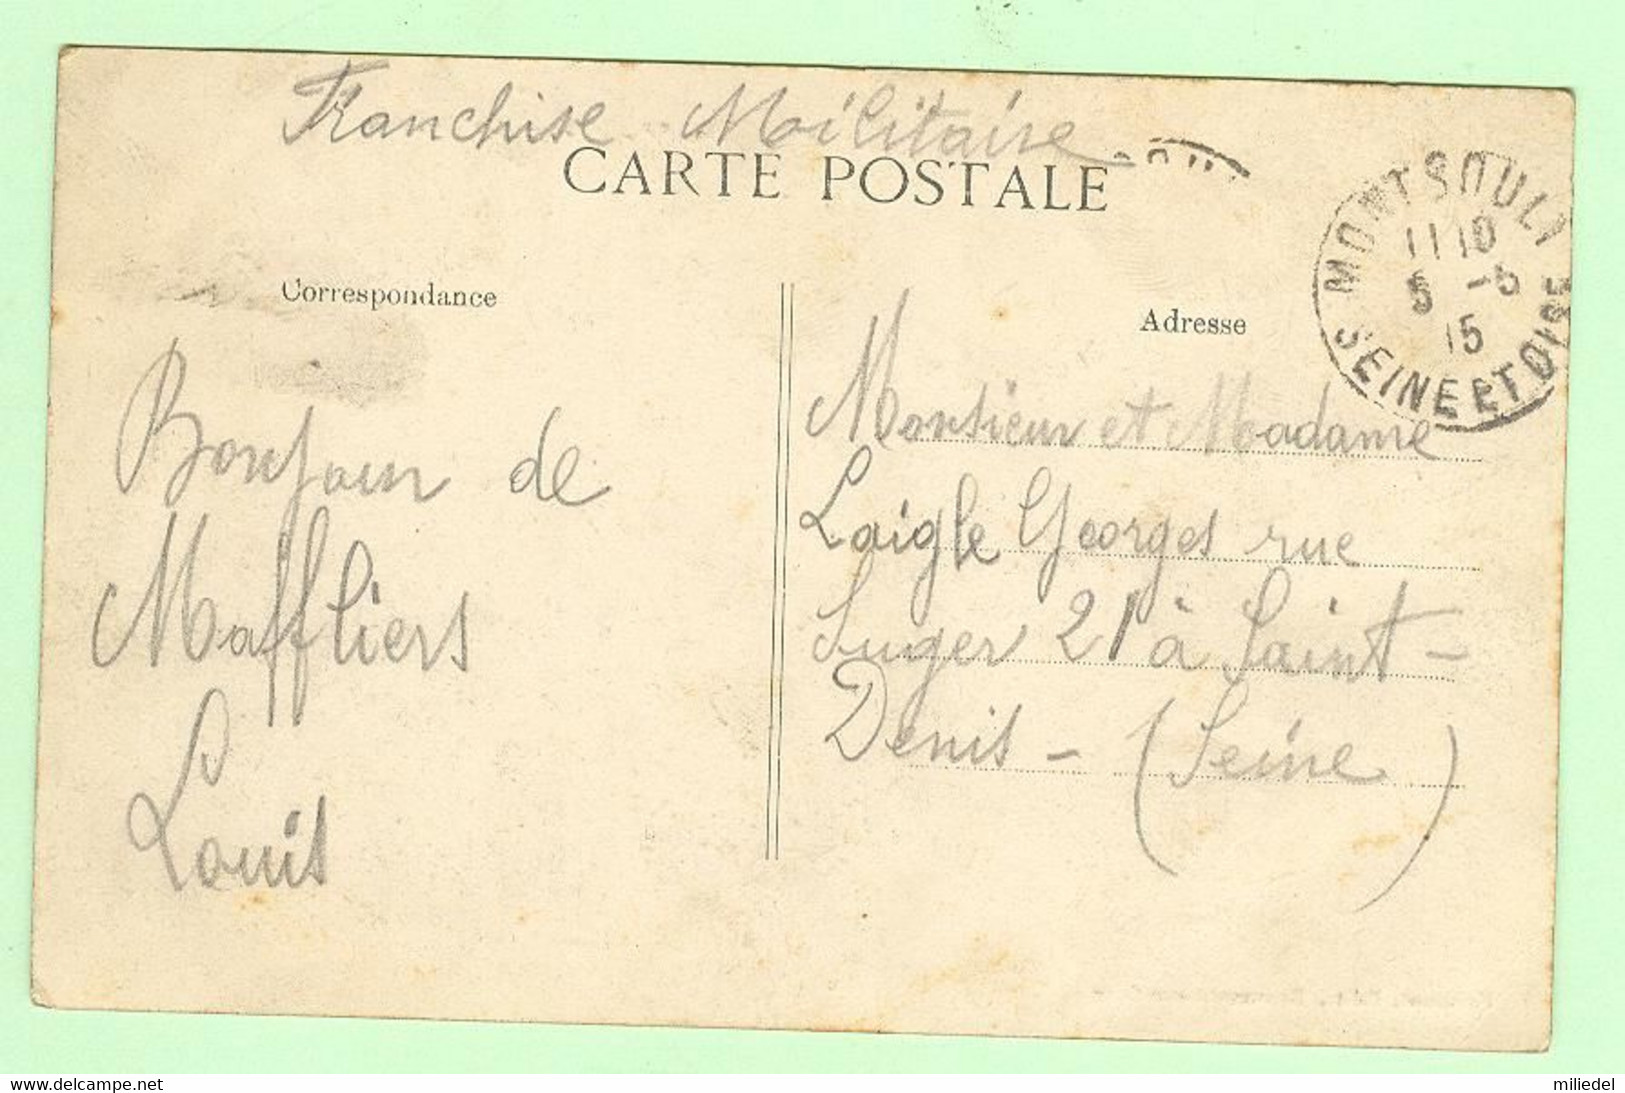 Franchise Militaire
CARTE POSTALE
MONTSOULT
11 10
5 -5
15
SEINE ET OISE
Correspondance
Adresse
Bonjour de
Maffliers
Louis
Monsieur et Madame
Laigle Georges rue
Suger 21 à Saint-
Denis - (Seine)
https://www.delcampe.net
miliedel